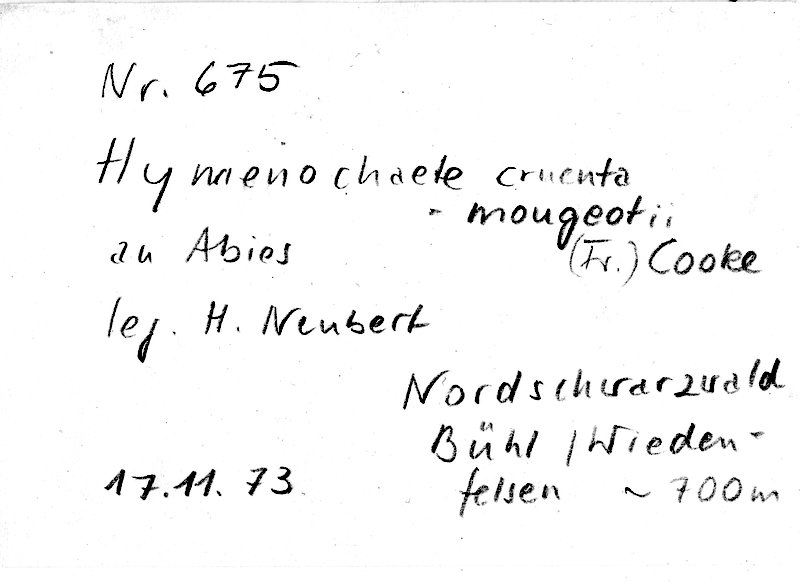 Nr. 675
Hymenochaete cruenta
- mougeotii
(Fr.) Cooke
an Abies
leg. H. Neubert
Nordschwarzwald
Bühl / Wieden-
felsen ~ 700m
17.11.73